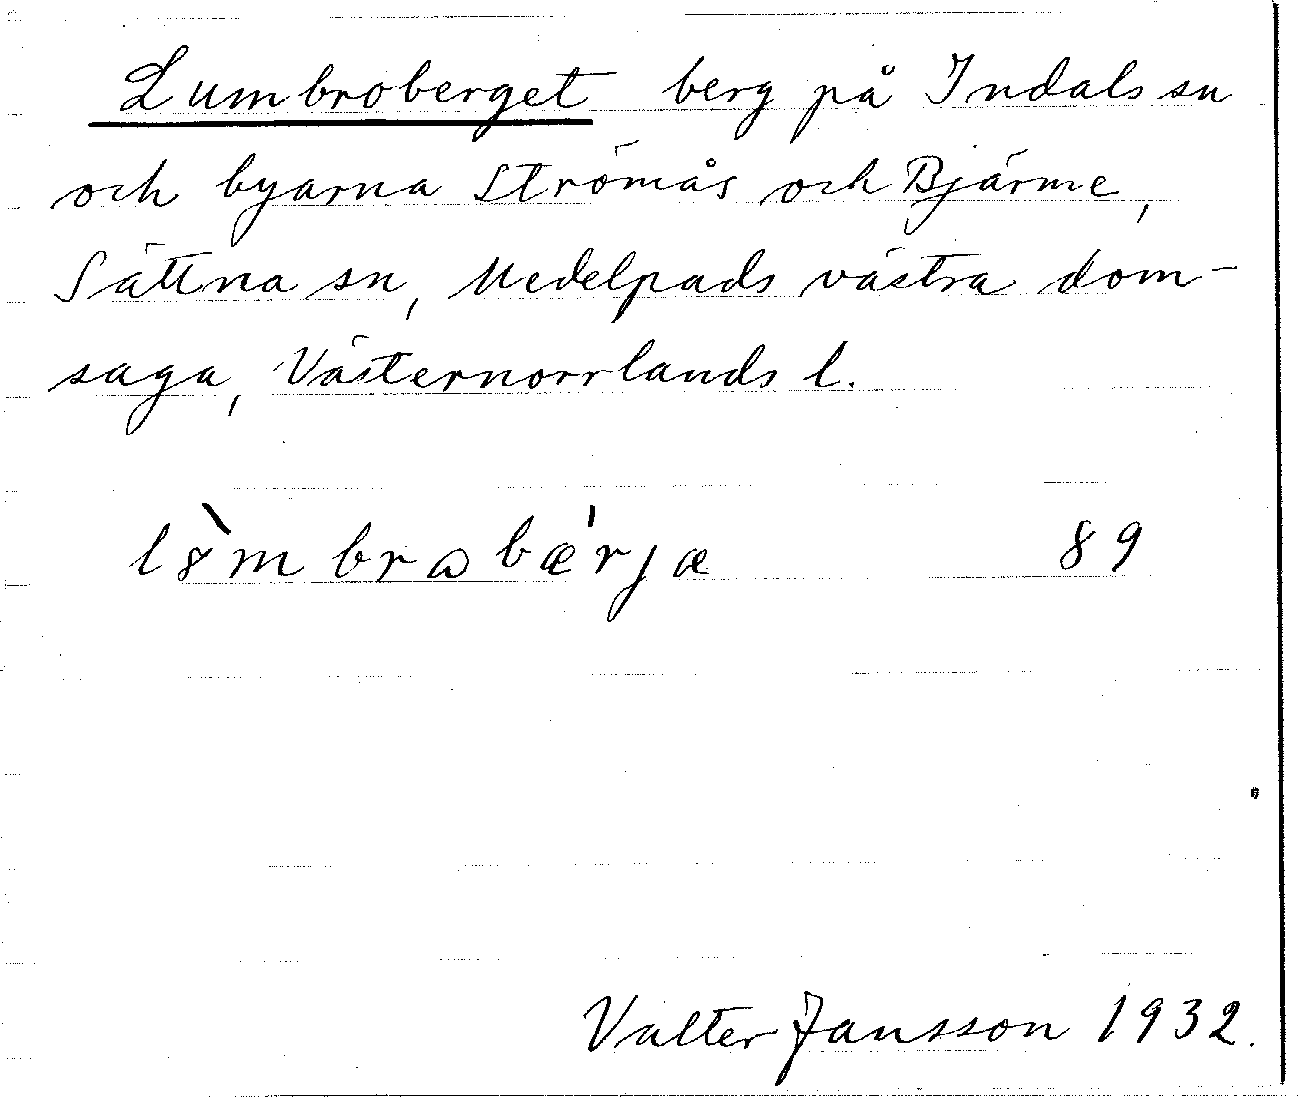 Lumbroberget berg på Indals sn
och byarna Strömås och Bjärme,
Sättna sn, Medelpads västra dom-
saga, Västernorrlands l.
lo᷈mbrɷbǽrjæ 89
Valter Jansson 1932.